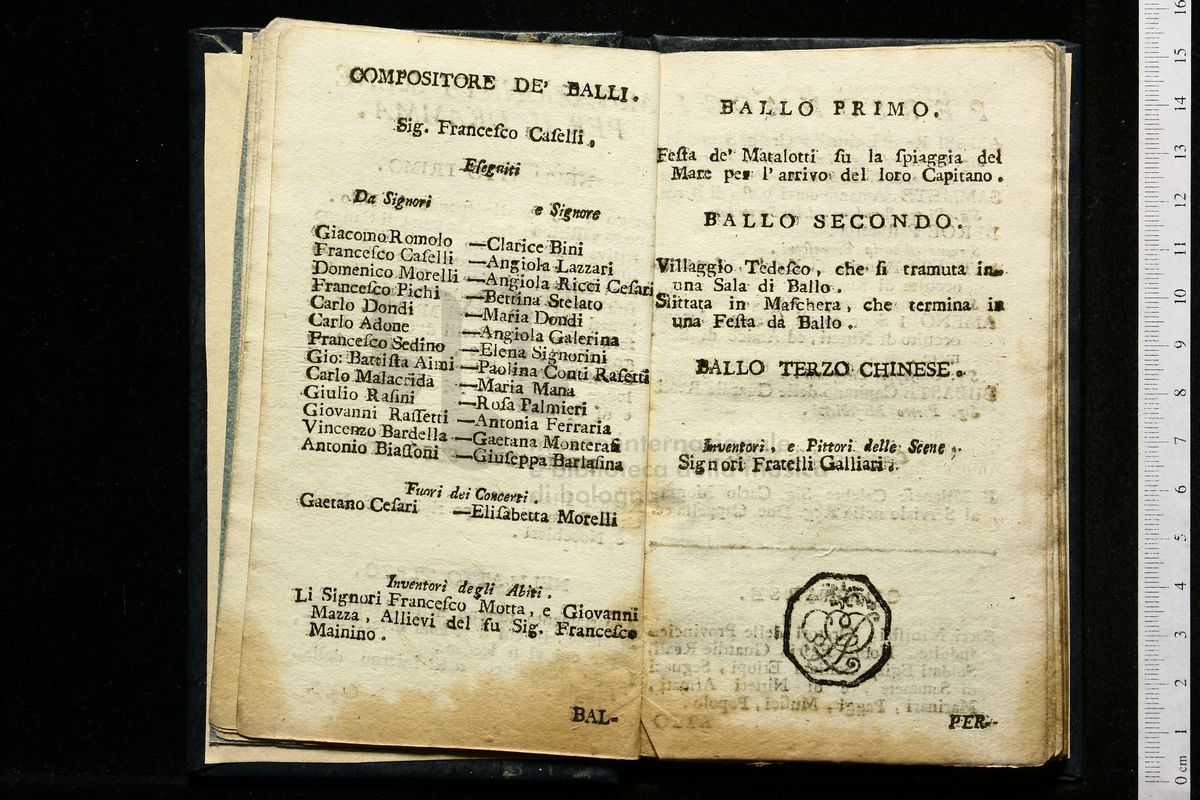 COMPOSITORE DE' BALLI.
Sig. Franceſco Caſelli.
Eſeguiti
Da Signori e Signore
Giacomo Romolo —Clarice Bini
Franceſco Caſelli —Angiola Lazzari
Domenico Morelli —Angiola Ricci Ceſari
Franceſco Pichi —Bettina Stelato
Carlo Dondi —Maria Dondi
Carlo Adone —Angiola Galerina
Franceſco Sedino —Elena Signorini
Gio: Battiſta Aimi —Paolina Conti Raſetti
Carlo Malacrida —Maria Mana
Giulio Raſini —Roſa Palmieri
Giovanni Raſſetti —Antonia Ferraria
Vincenzo Bardella —Gaetana Monteraſi
Antonio Biaſſoni —Giuſeppa Barlaſina
Fuori dei Concerti.
Gaetano Ceſari —Eliſabetta Morelli
Inventori degli Abiti.
Li Signori Franceſco Motta, e Giovanni
Mazza, Allievi del fu Sig. Franceſco
Mainino.
BAL-
BALLO PRIMO.
Feſta de' Matalotti ſu la ſpiaggia del
Mare per l'arrivo del loro Capitano.
BALLO SECONDO.
Villaggio Tedeſco, che ſi tramuta in
una Sala di Ballo.
Slittata in Maſchera, che termina in
una Feſta da Ballo.
BALLO TERZO CHINESE.
Inventori, e Pittori delle Scene;
Signori Fratelli Galliari.
PER-
internazionale
biblioteca della musica
di bologna
0 cm 1 2 3 4 5 6 7 8 9 10 11 12 13 14 15 16